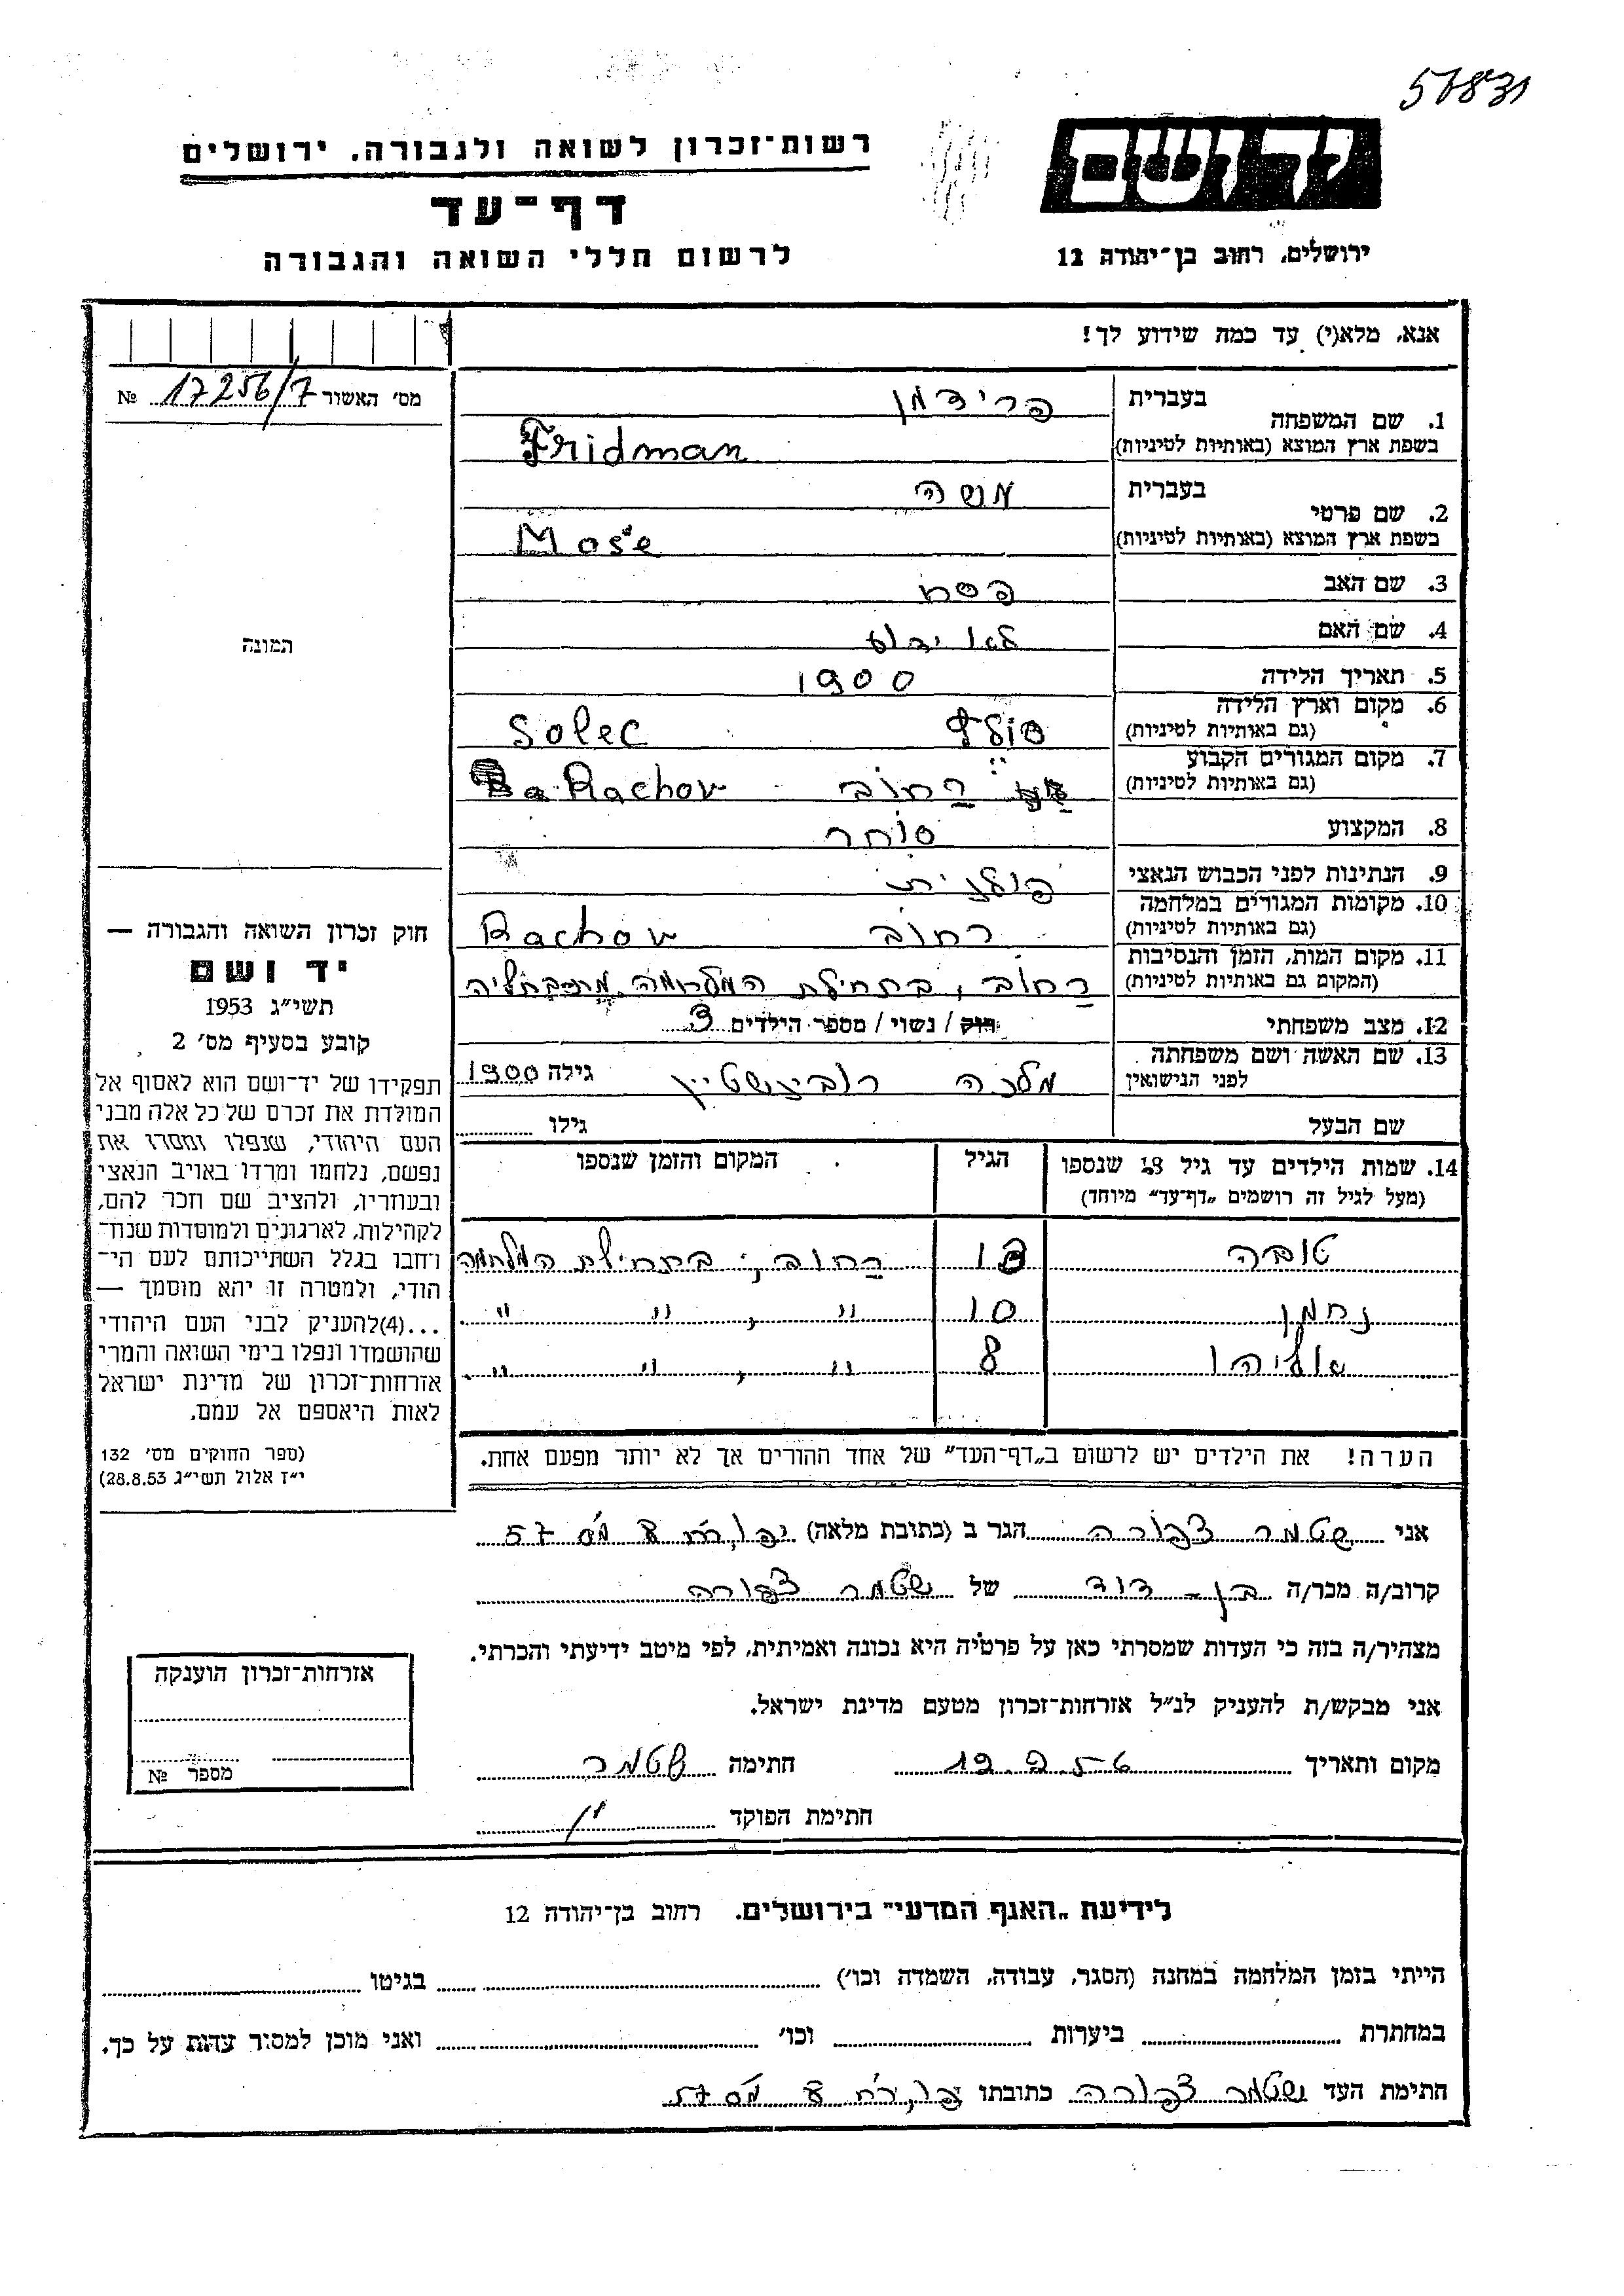 57831
יד ושם
רשות־זכרון לשואה ולגבורה, ירושלים
דף־עד
לרשום חללי השואה והגבורה
ירושלים, רחוב בן־יהודה 12
אנא, מלא(י) עד כמה שידוע לך!
מס׳ האשור 17256/7 №
התמונה
1. שם המשפחה
בעברית פרידמן
בשפת ארץ המוצא (באותיות לטיניות) Fridman
2. שם פרטי
בעברית משה
בשפת ארץ המוצא (באותיות לטיניות) Moše
3. שם האב פסח
4. שם האם לא ידוע
5. תאריך הלידה 1900
6. מקום וארץ הלידה
(גם באותיות לטיניות) סולץ Solec
7. מקום המגורים הקבוע
(גם באותיות לטיניות) רחוב Rachov
8. המקצוע סוחר
9. הנתינות לפני הכבוש הנאצי פולנית
10. מקומות המגורים במלחמה
(גם באותיות לטיניות) רחוב Rachov
11. מקום המות, הזמן והנסיבות
(המקום גם באותיות לטיניות) רחוב, בתחילת המלחמה
12. מצב משפחתי רווק / נשוי / מספר הילדים 3
13. שם האשה ושם משפחתה
לפני הנישואין מלכה רובינשטיין גילה 1900
שם הבעל גילו
14. שמות הילדים עד גיל 18 שנספו הגיל המקום והזמן שנספו
(מעל לגיל זה רושמים „דף־עד״ מיוחד)
טובה 13 רחוב, בתחילת המלחמה
נחמן 10 ״ , ״ ״
אליהו 8 ״ , ״ ״
הערה! את הילדים יש לרשום ב„דף־העד״ של אחד ההורים אך לא יותר מפעם אחת.
חוק זכרון השואה והגבורה —
יד ושם
תשי״ג 1953
קובע בסעיף מס׳ 2
תפקידו של יד־ושם הוא לאסוף אל
המולדת את זכרם של כל אלה מבני
העם היהודי, שנפלו ומסרו את
נפשם, נלחמו ומרדו באויב הנאצי
ובעוזריו, ולהציב שם וזכר להם,
לקהילות, לארגונים ולמוסדות שנח־
רחבו בגלל השתייכותם לעם הי־
הודי, ולמטרה זו יהא מוסמך —
...(4)להעניק לבני העם היהודי
שהושמדו ונפלו בימי השואה והמרי
אזרחות־זכרון של מדינת ישראל
לאות היאספם אל עמם.
(ספר החוקים מס׳ 132
י״ז אלול תשי״ג 28.8.53)
אני שטמר צפורה הגר ב (כתובת מלאה) 57
קרוב/ה מכר/ה בן־דוד של שטמר צפורה
מצהיר/ה בזה כי העדות שמסרתי כאן על פרטיה היא נכונה ואמיתית, לפי מיטב ידיעתי והכרתי.
אני מבקש/ת להעניק לנ״ל אזרחות־זכרון מטעם מדינת ישראל.
מקום ותאריך חתימה שטמר
חתימת הפוקד
אזרחות־זכרון הוענקה
מספר №
לידיעת „האגף המדעי״ בירושלים, רחוב בן־יהודה 12
הייתי בזמן המלחמה במחנה (הסגר, עבודה, השמדה וכו׳) בגיטו
במחתרת ביערות וכו׳ ואני מוכן למסור עדות על כך.
חתימת העד שטמר צפורה כתובתו 57